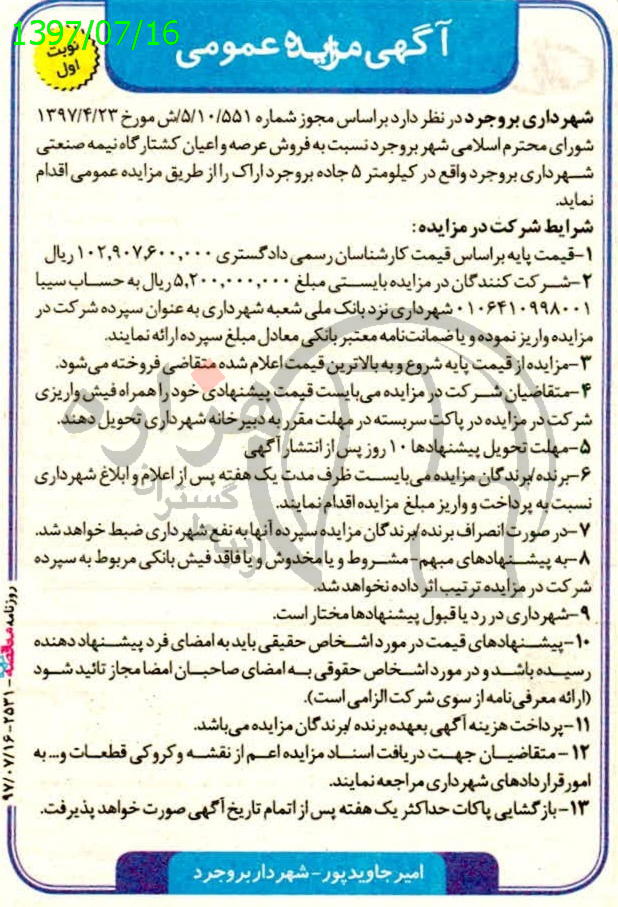 1397/07/16
نوبت
اول
آگهی مزایده عمومی
شهرداری بروجرد در نظر دارد براساس مجوز شماره ۵/۱۰/۵۵۱/ش مورخ ۱۳۹۷/۴/۲۳
شورای محترم اسلامی شهر بروجرد نسبت به فروش عرصه و اعیان کشتارگاه نیمه صنعتی
شهرداری بروجرد واقع در کیلومتر ۵ جاده بروجرد اراک را از طریق مزایده عمومی اقدام
نماید.
شرایط شرکت در مزایده:
۱-قیمت پایه براساس قیمت کارشناسان رسمی دادگستری ۱۰۲,۹۰۷,۶۰۰,۰۰۰ ریال
۲-شرکت کنندگان در مزایده بایستی مبلغ ۵,۲۰۰,۰۰۰,۰۰۰ ریال به حساب سیبا
۰۱۰۶۴۱۰۹۹۸۰۰۱ شهرداری نزد بانک ملی شعبه شهرداری به عنوان سپرده شرکت در
مزایده واریز نموده و یا ضمانت‌نامه معتبر بانکی معادل مبلغ سپرده ارائه نمایند.
۳-مزایده از قیمت پایه شروع و به بالاترین قیمت اعلام شده متقاضی فروخته می‌شود.
۴-متقاضیان شرکت در مزایده می‌بایست قیمت پیشنهادی خود را همراه فیش واریزی
شرکت در مزایده در پاکت سربسته در مهلت مقرر به دبیرخانه شهرداری تحویل دهند.
۵-مهلت تحویل پیشنهادها ۱۰ روز پس از انتشار آگهی
۶-برنده/برندگان مزایده می‌بایست ظرف مدت یک هفته پس از اعلام و ابلاغ شهرداری
نسبت به پرداخت و واریز مبلغ مزایده اقدام نمایند.
۷-در صورت انصراف برنده/برندگان مزایده سپرده آنها به نفع شهرداری ضبط خواهد شد.
۸-به پیشنهادهای مبهم-مشروط و یا مخدوش و یا فاقد فیش بانکی مربوط به سپرده
شرکت در مزایده ترتیب اثر داده نخواهد شد.
۹-شهرداری در رد یا قبول پیشنهادها مختار است.
۱۰-پیشنهادهای قیمت در مورد اشخاص حقیقی باید به امضای فرد پیشنهاد دهنده
رسیده باشد و در مورد اشخاص حقوقی به امضای صاحبان امضا مجاز تائید شود
(ارائه معرفی‌نامه از سوی شرکت الزامی است).
۱۱-پرداخت هزینه آگهی بعهده برنده /برندگان مزایده می‌باشد.
۱۲-متقاضیان جهت دریافت اسناد مزایده اعم از نقشه و کروکی قطعات و... به
امور قراردادهای شهرداری مراجعه نمایند.
۱۳-بازگشایی پاکات حداکثر یک هفته پس از اتمام تاریخ آگهی صورت خواهد پذیرفت.
امیر جاویدپور-شهردار بروجرد
روزنامه مناقصه - ۲۵۳۱ - ۹۷/۰۷/۱۶
هزاره